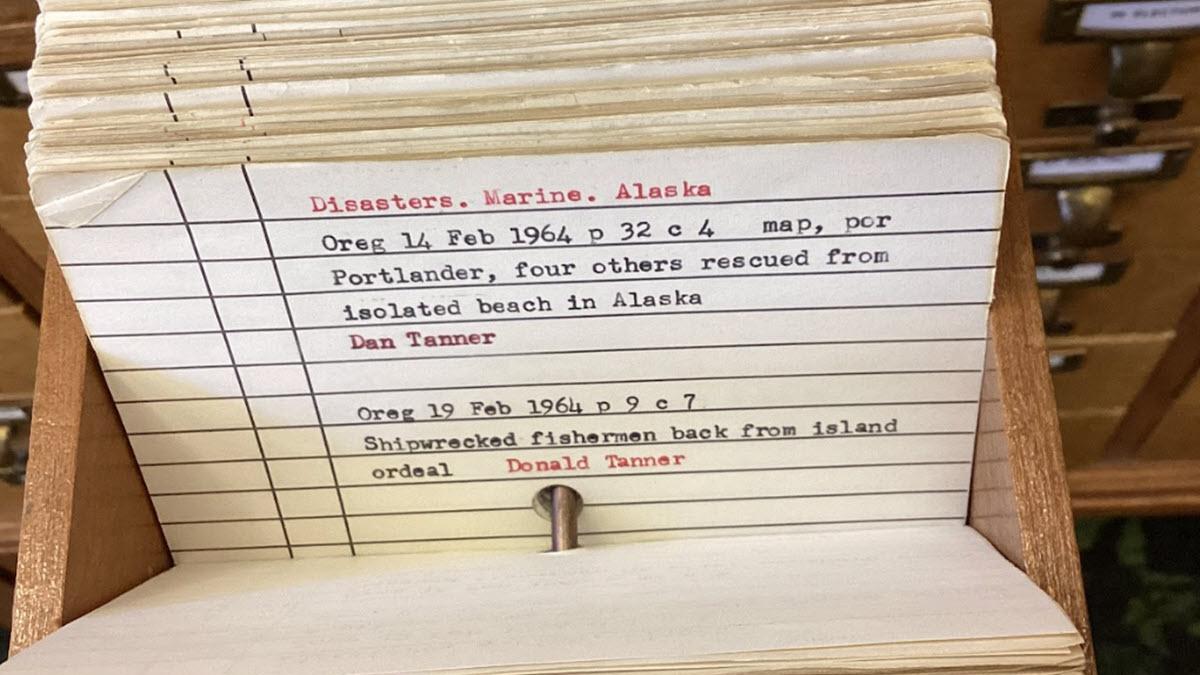 Disasters. Marine. Alaska
Oreg 14 Feb 1964 p 32 c 4 map, por
Portlander, four others rescued from
isolated beach in Alaska
Dan Tanner
Oreg 19 Feb 1964 p 9 c 7
Shipwrecked fishermen back from island
ordeal Donald Tanner